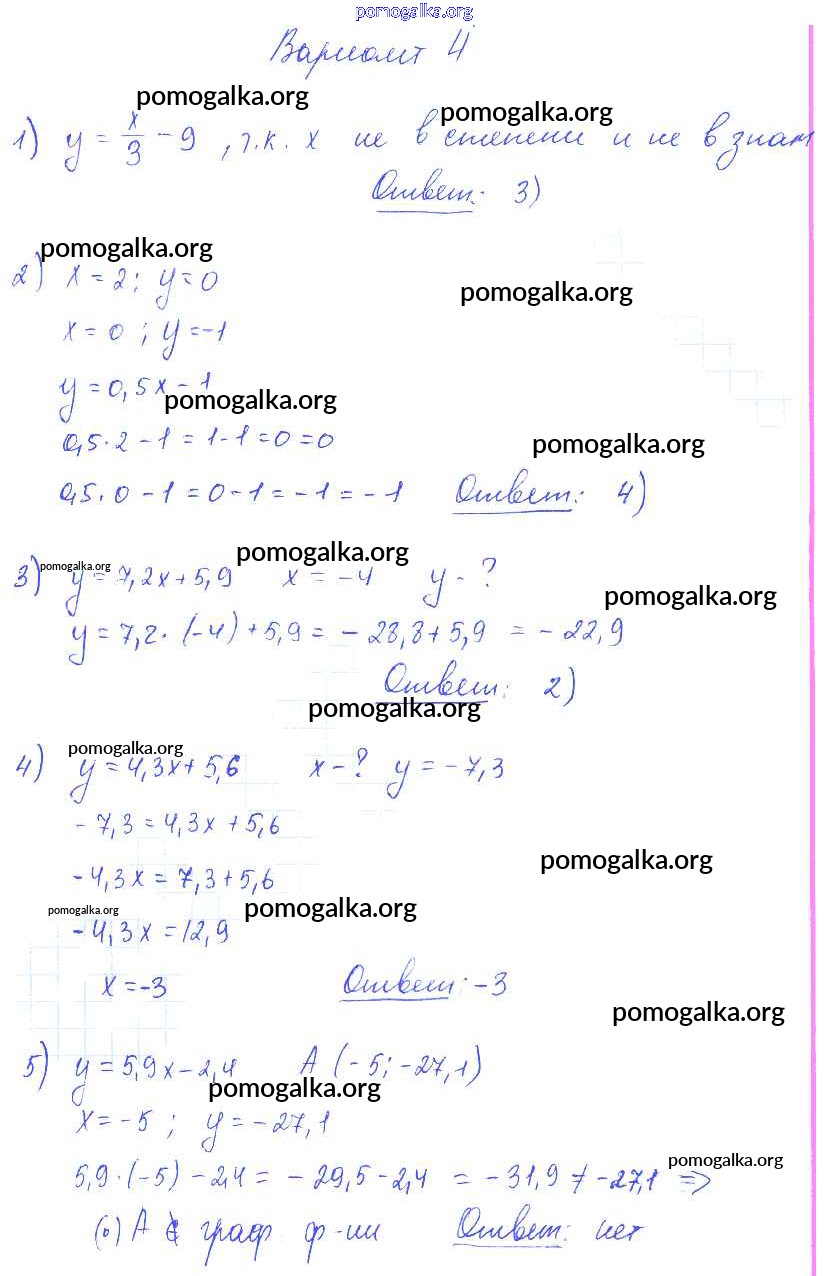 pomogalka.org
Вариант 4
pomogalka.org
pomogalka.org
1) y = x/3 - 9 , т.к. x не в степени и не в знам
Ответ: 3)
pomogalka.org
2) x = 2; y = 0
pomogalka.org
x = 0 ; y = -1
y = 0,5x - 1
pomogalka.org
0,5 · 2 - 1 = 1 - 1 = 0 = 0
pomogalka.org
0,5 · 0 - 1 = 0 - 1 = -1 = -1 Ответ: 4)
pomogalka.org
pomogalka.org
3) y = 7,2x + 5,9 x = -4 y - ?
pomogalka.org
y = 7,2 · (-4) + 5,9 = - 28,8 + 5,9 = - 22,9
Ответ: 2)
pomogalka.org
pomogalka.org
4) y = 4,3x + 5,6 x - ? y = -7,3
- 7,3 = 4,3x + 5,6
pomogalka.org
- 4,3x = 7,3 + 5,6
pomogalka.org
pomogalka.org
- 4,3x = 12,9
x = -3 Ответ: -3
pomogalka.org
5) y = 5,9x - 2,4 A (-5; -27,1)
pomogalka.org
x = -5 ; y = -27,1
pomogalka.org
5,9 · (-5) - 2,4 = - 29,5 - 2,4 = - 31,9 ≠ -27,1 =>
(·) A ∉ граф. ф-ии Ответ: нет